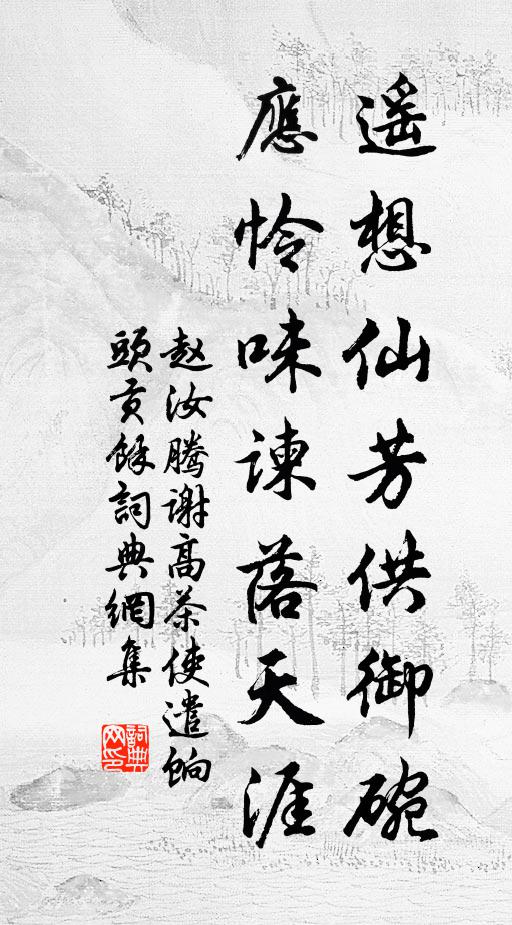 遥想仙芳供御碗
應怜味諫落天涯
赵汝腾谢高茶使遣餉
頭贡餘詞典網集
詞典網印